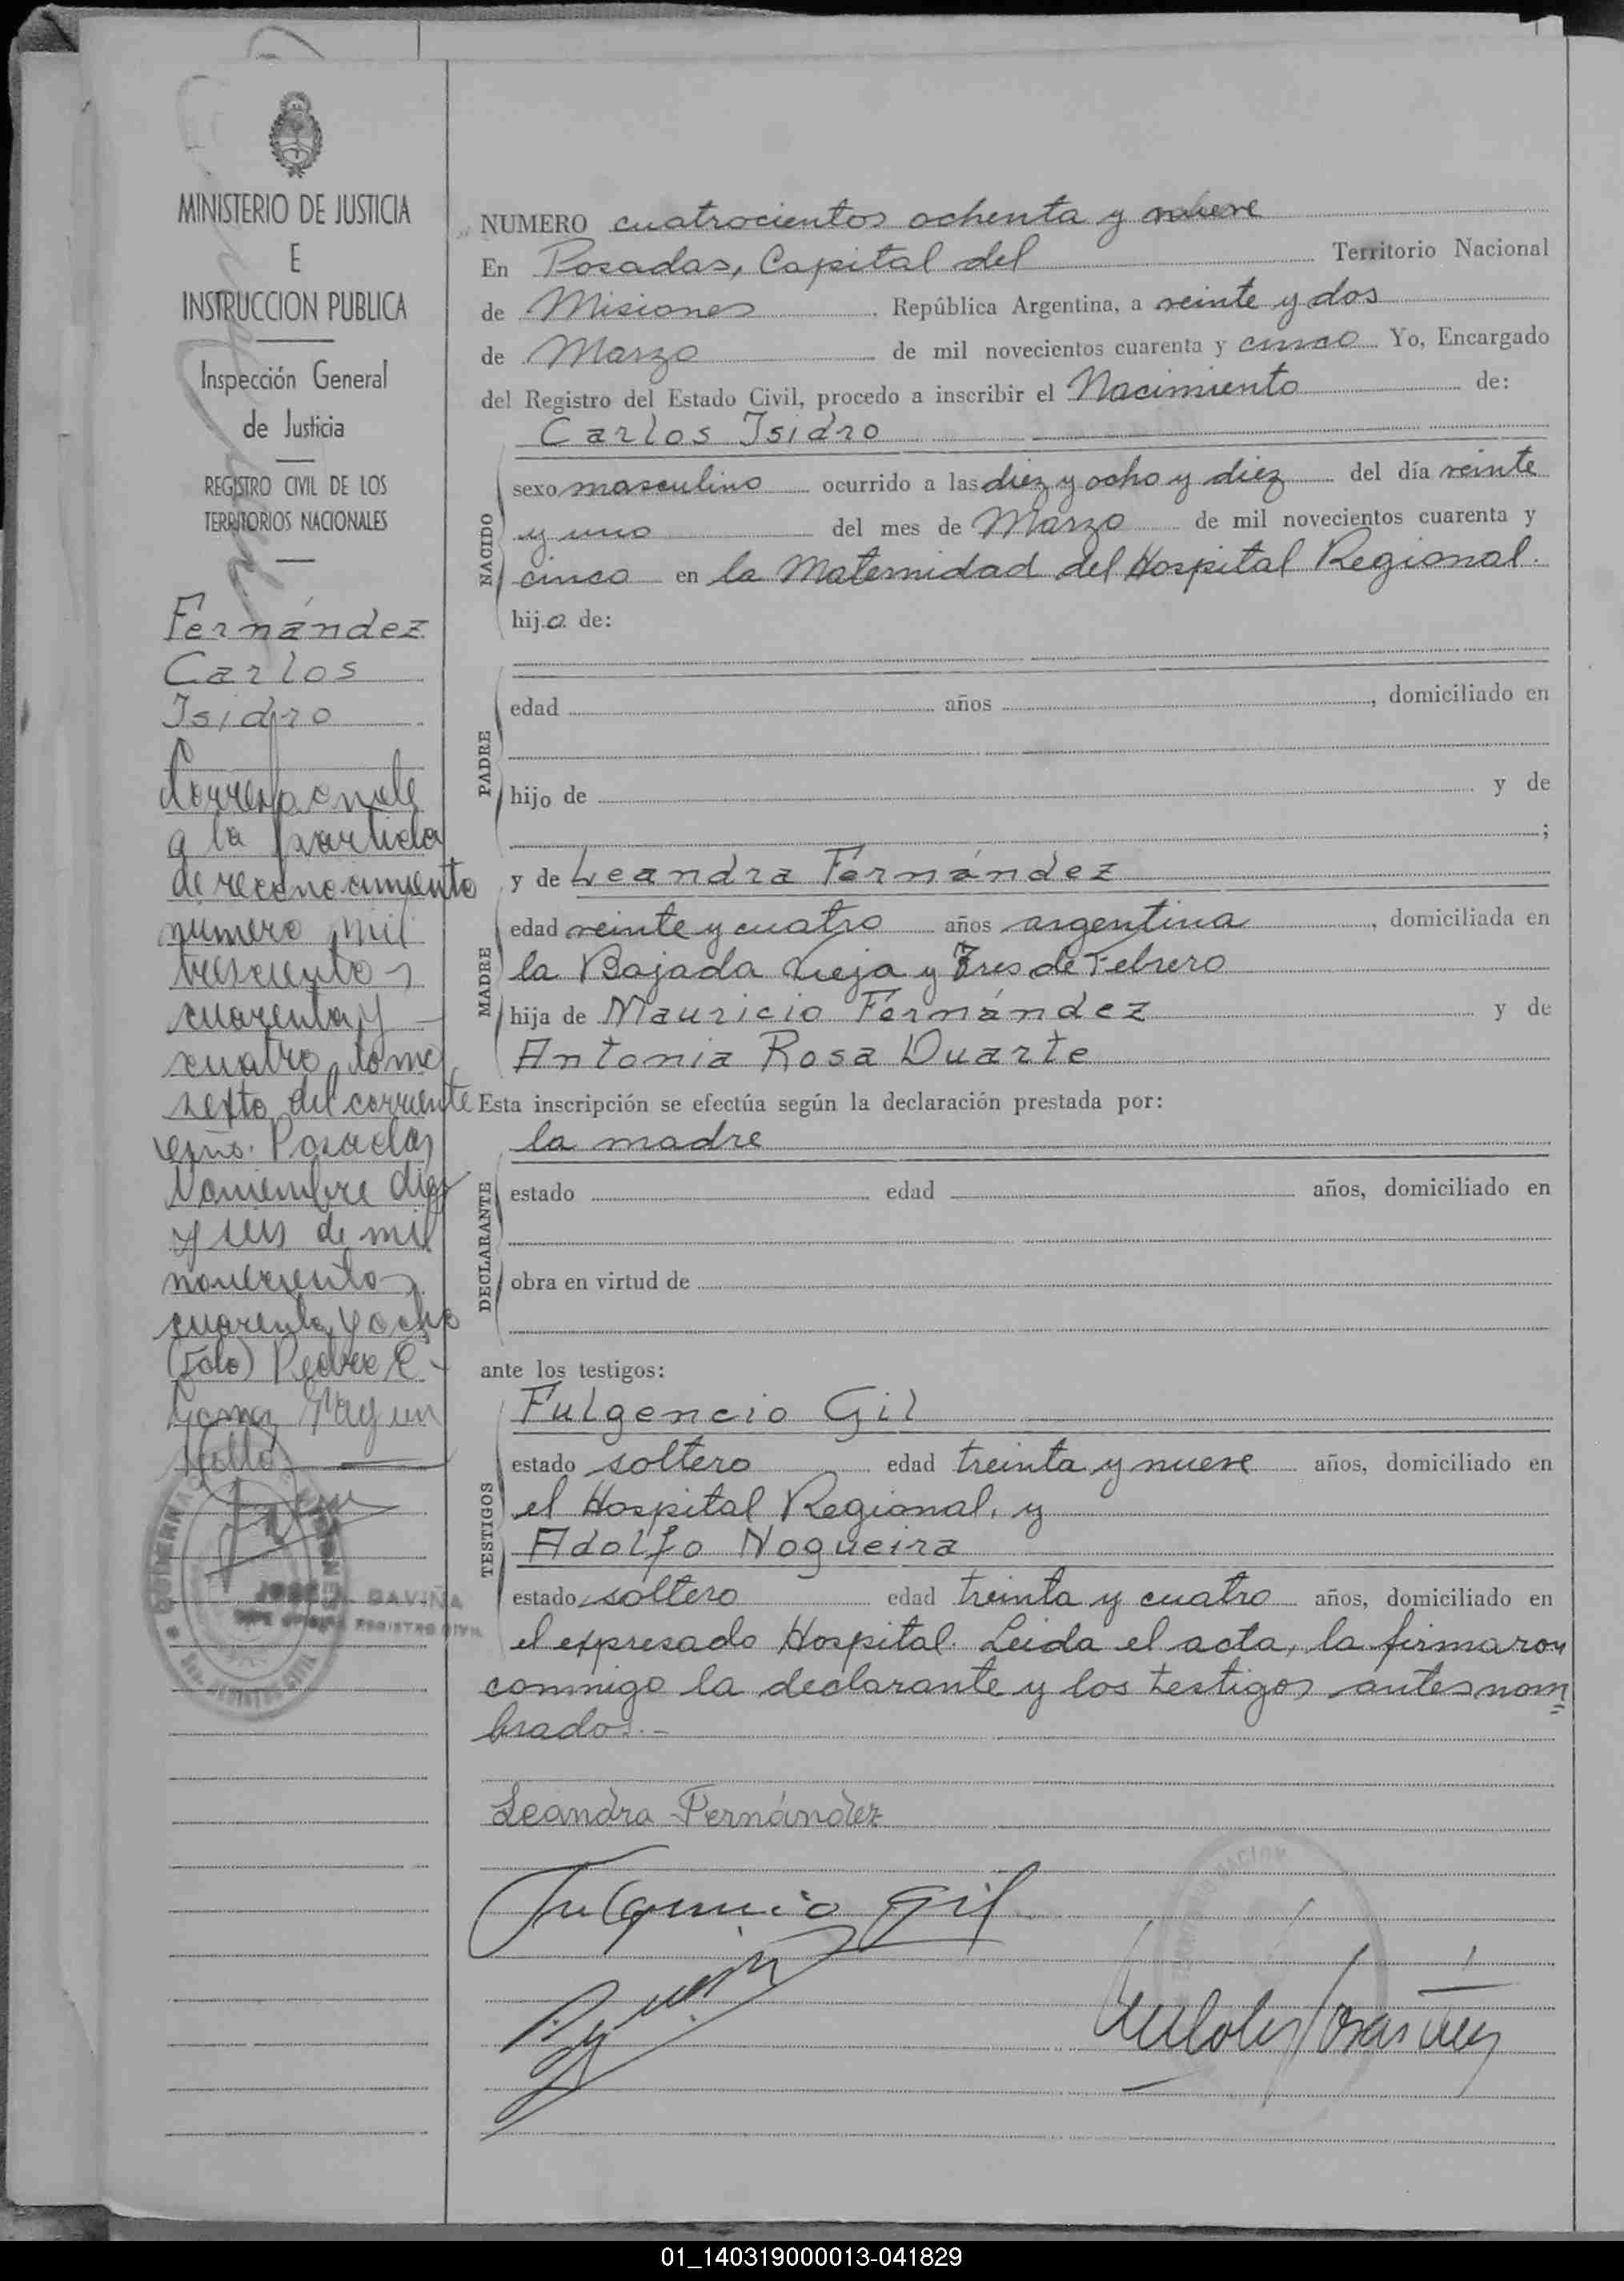 MINISTERIO DE JUSTICIA
E
INSTRUCCION PUBLICA
Inspección General
de Justicia
REGISTRO CIVIL DE LOS
TERRITORIOS NACIONALES
Fernández
Carlos
Isidro
Corresponde
a la partida
de reconocimiento
numero mil
trescientos
cuarenta y
cuatro tomo
sexto del corriente
año. Posadas
Noviembre diez
y seis de mil
novecientos
cuarenta y ocho
(Fdo) Pedro C.
GAVIÑA
REGISTRO CIVIL
NUMERO cuatrocientos ochenta y nueve
En Posadas, Capital del Territorio Nacional
de Misiones, República Argentina, a veinte y dos
de Marzo de mil novecientos cuarenta y cinco Yo, Encargado
del Registro del Estado Civil, procedo a inscribir el Nacimiento de:
Carlos Isidro
NACIDO
sexo masculino ocurrido a las diez y ocho y diez del día veinte
y uno del mes de Marzo de mil novecientos cuarenta y
cinco en la Maternidad del Hospital Regional.
hijo de:
PADRE
edad años , domiciliado en
hijo de y de
;
MADRE
y de Leandra Fernández
edad veinte y cuatro años argentina, domiciliada en
la Bajada Vieja y Tres de Febrero
hija de Mauricio Fernández y de
Antonia Rosa Duarte
Esta inscripción se efectúa según la declaración prestada por:
la madre
DECLARANTE
estado edad años, domiciliado en
obra en virtud de
ante los testigos:
TESTIGOS
Fulgencio Gil
estado soltero edad treinta y nueve años, domiciliado en
el Hospital Regional, y
Adolfo Nogueira
estado soltero edad treinta y cuatro años, domiciliado en
el expresado Hospital. Leida el acta, la firmaron
conmigo la declarante y los testigos antes nom
brados.-
Leandra Fernández
Fulgencio Gil
01_140319000013-041829